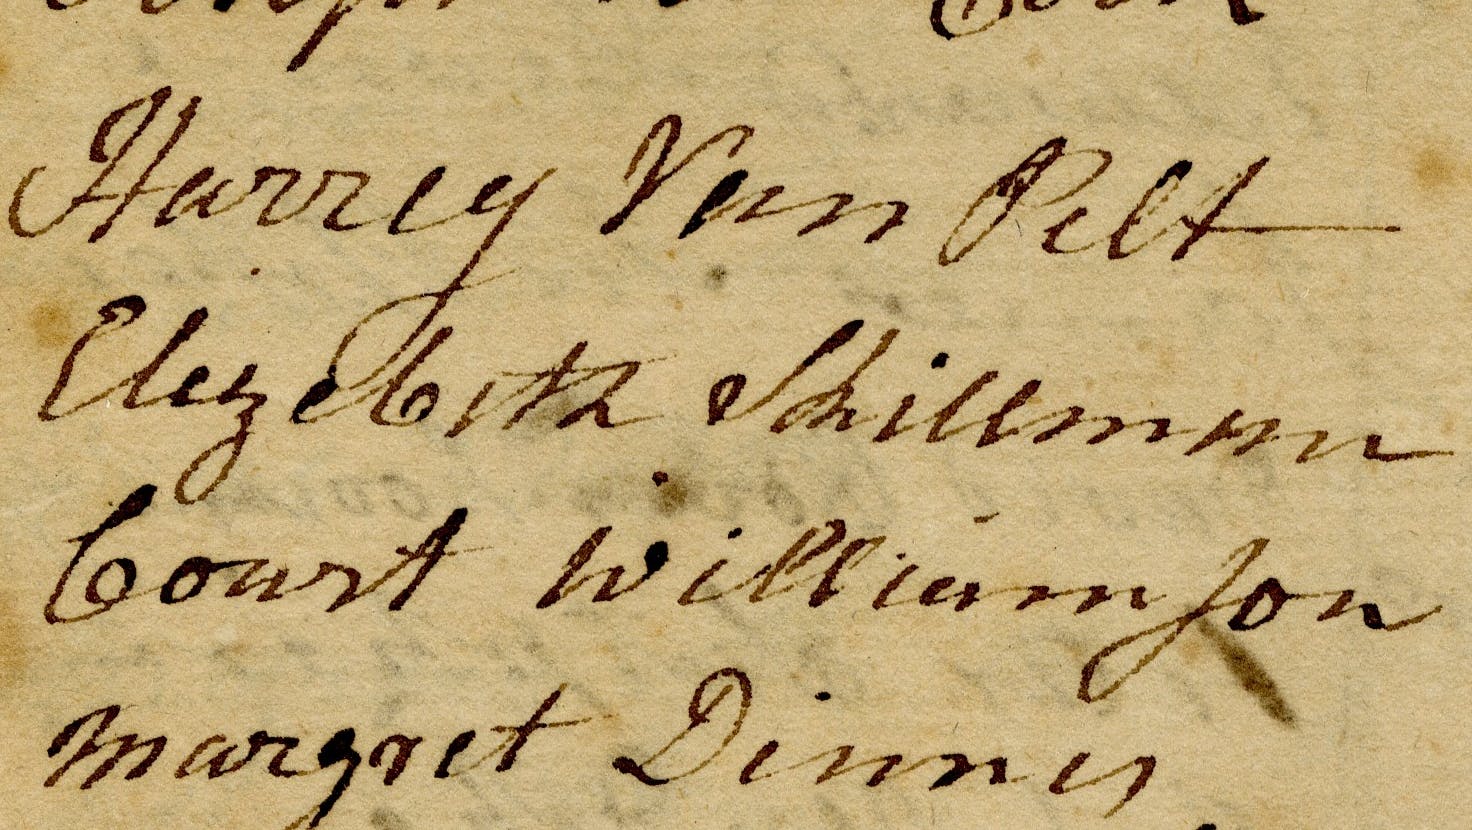 Harrey Van Pelt
Elizebeth Shillman
Court Williamson
margret Dinnis